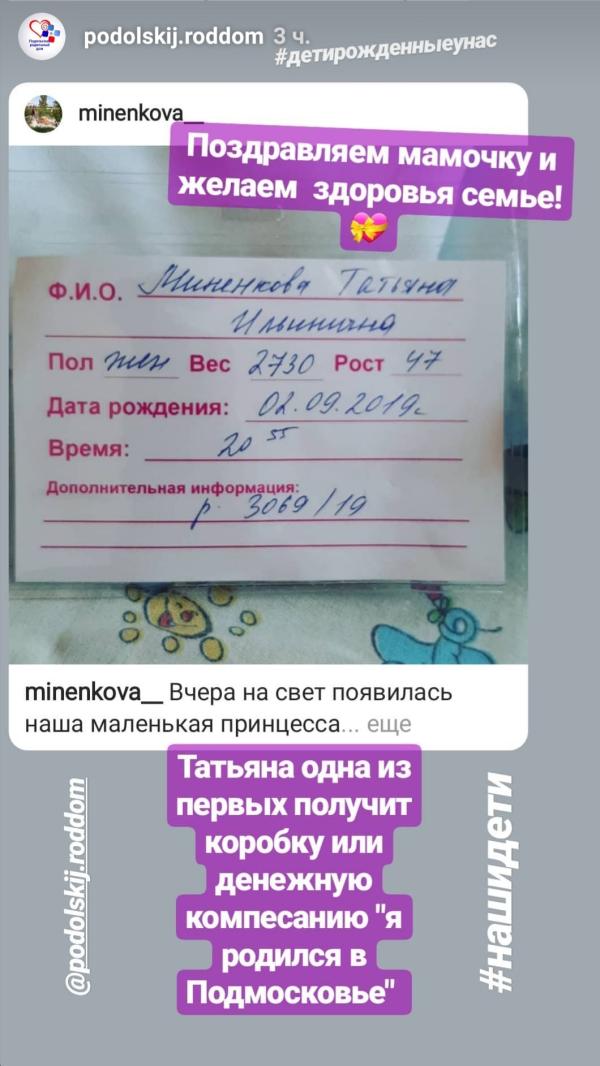 podolskij.roddom 3 ч.
#детирожденныеунас
minenkova__
Поздравляем мамочку и
желаем здоровья семье!
Ф.И.О. Миненкова Татьяна
Ильинична
Пол жен Вес 2730 Рост 47
Дата рождения: 02.09.2019г
Время: 20 55
Дополнительная информация:
р. 3069/19
minenkova__ Вчера на свет появилась
наша маленькая принцесса... еще
Татьяна одна из
первых получит
коробку или
денежную
компесанию "я
родился в
Подмосковье"
@podolskij.roddom
#нашидети